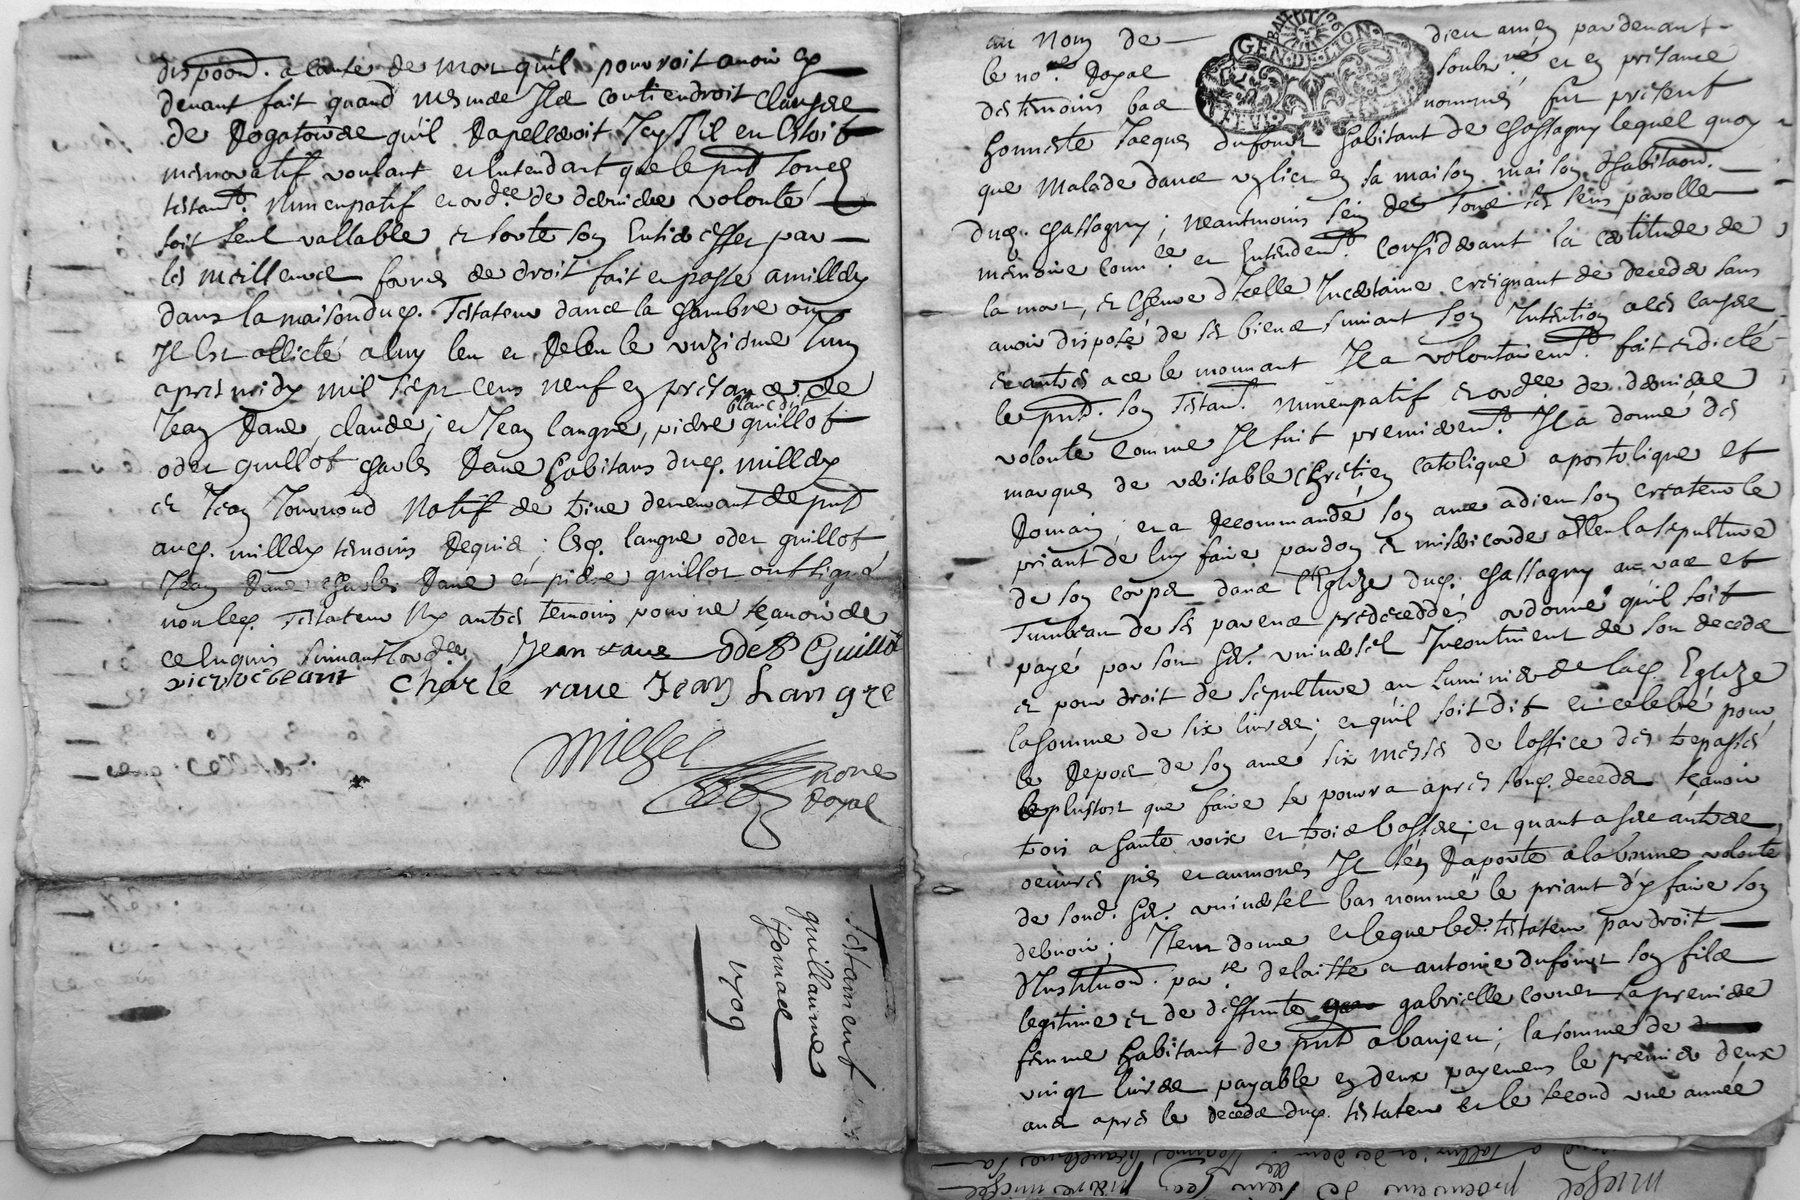 dispoon. a cause de mort quil pourroit avoir cy
devant fait quand mesmes Ils contiendroit clauses
de Rogatoires quil Rapelleroit Icy sil en Estoit
memoratif voulant et Entendant que le pnt son
testamt. nuncupatif et ordce. de derniere volonté
soit seul vallable et sorte son Entier effet par
les meilleures formes de droit fait et passé a millery
dans la maison dud. Testateur dans la chambre ou
Il Est allicté a luy leu et Releu le unziesme Juin
apres midy mil sept cens neuf en presance de
Jean Rave, claude, et Jean langre, pierre guillot
odet guillot charles Rave habitans dud. millery
et Jean Natif de demeurant de pnt
aud. millery temoins Requis ; Lesd. langre odet guillot,
Jean Rave charles Rave et pierre guillot ont signé
non led. Testateur Ny autres temoins pour ne scavoir de
ce Enquis suivant lordce. Jean rave Odet Guillot
charle rave Jean Langre
noire
Royal
Testament
guillaume
1709
au Nom de dieu amen pardevant
le nore. Royal soubsné. et en presance
des temoins bas nommés fut present
honneste Jacques dufour habitant de chassagny lequel quoy
que Malade dans un lict en sa maison maison dhabitaon.
dud. chassagny ; neantmoins sein de tous ses sens parolle
memoire connce. et Entendemt. considerant la certitude de
la mort, et lheure dIcelle Incertaine creignant de deceder sans
avoir disposé de ses biens suivant son Intention a ces causes
et autres a ce le mouvant Il a volontairemt. fait et dicté
le pnt. son Testamt. nuncupatif et ordce. de derniere
volonté comme Il suit premieremt. Il a donné des
marques de veritable chrétien catolique apostolique et
Romain, et a Recommandé son ame a dieu son createur le
priant de luy faire pardon et misericorde Eslu la sepulture
de son corps dans l'Eglize dud. chassagny au vas et
Tumbeau de ses parens predeceddés ordonne quil soit
payé par son her. universel Incontinent de son deceds
et pour droit de sepulture au Luminier de lad. Eglize
la somme de six livres ; et quil soit dit et celebré pour
le Repos de son ame six messes de loffice des trepassés
le plustost que faire se pourra apres sond. deceds scavoir
trois a haute voix et trois basses ; et quant a ses autres
oeuvres pies et aumones Il s'en Raporte a la bonne volonté
de sond. her. universel bas nommé le priant d'y faire son
debvoir ; Item donne et legue led. testateur par droit
dInstitution. parte. delaisse a antoine dufour son fils
legitime et de deffunte gabrielle cornet sa premiere
femme habitant de pnt a baujeu ; la somme de
vingt livres payable en deux payemens le premier deux
ans apres le deceds dud. testateur et le second une année